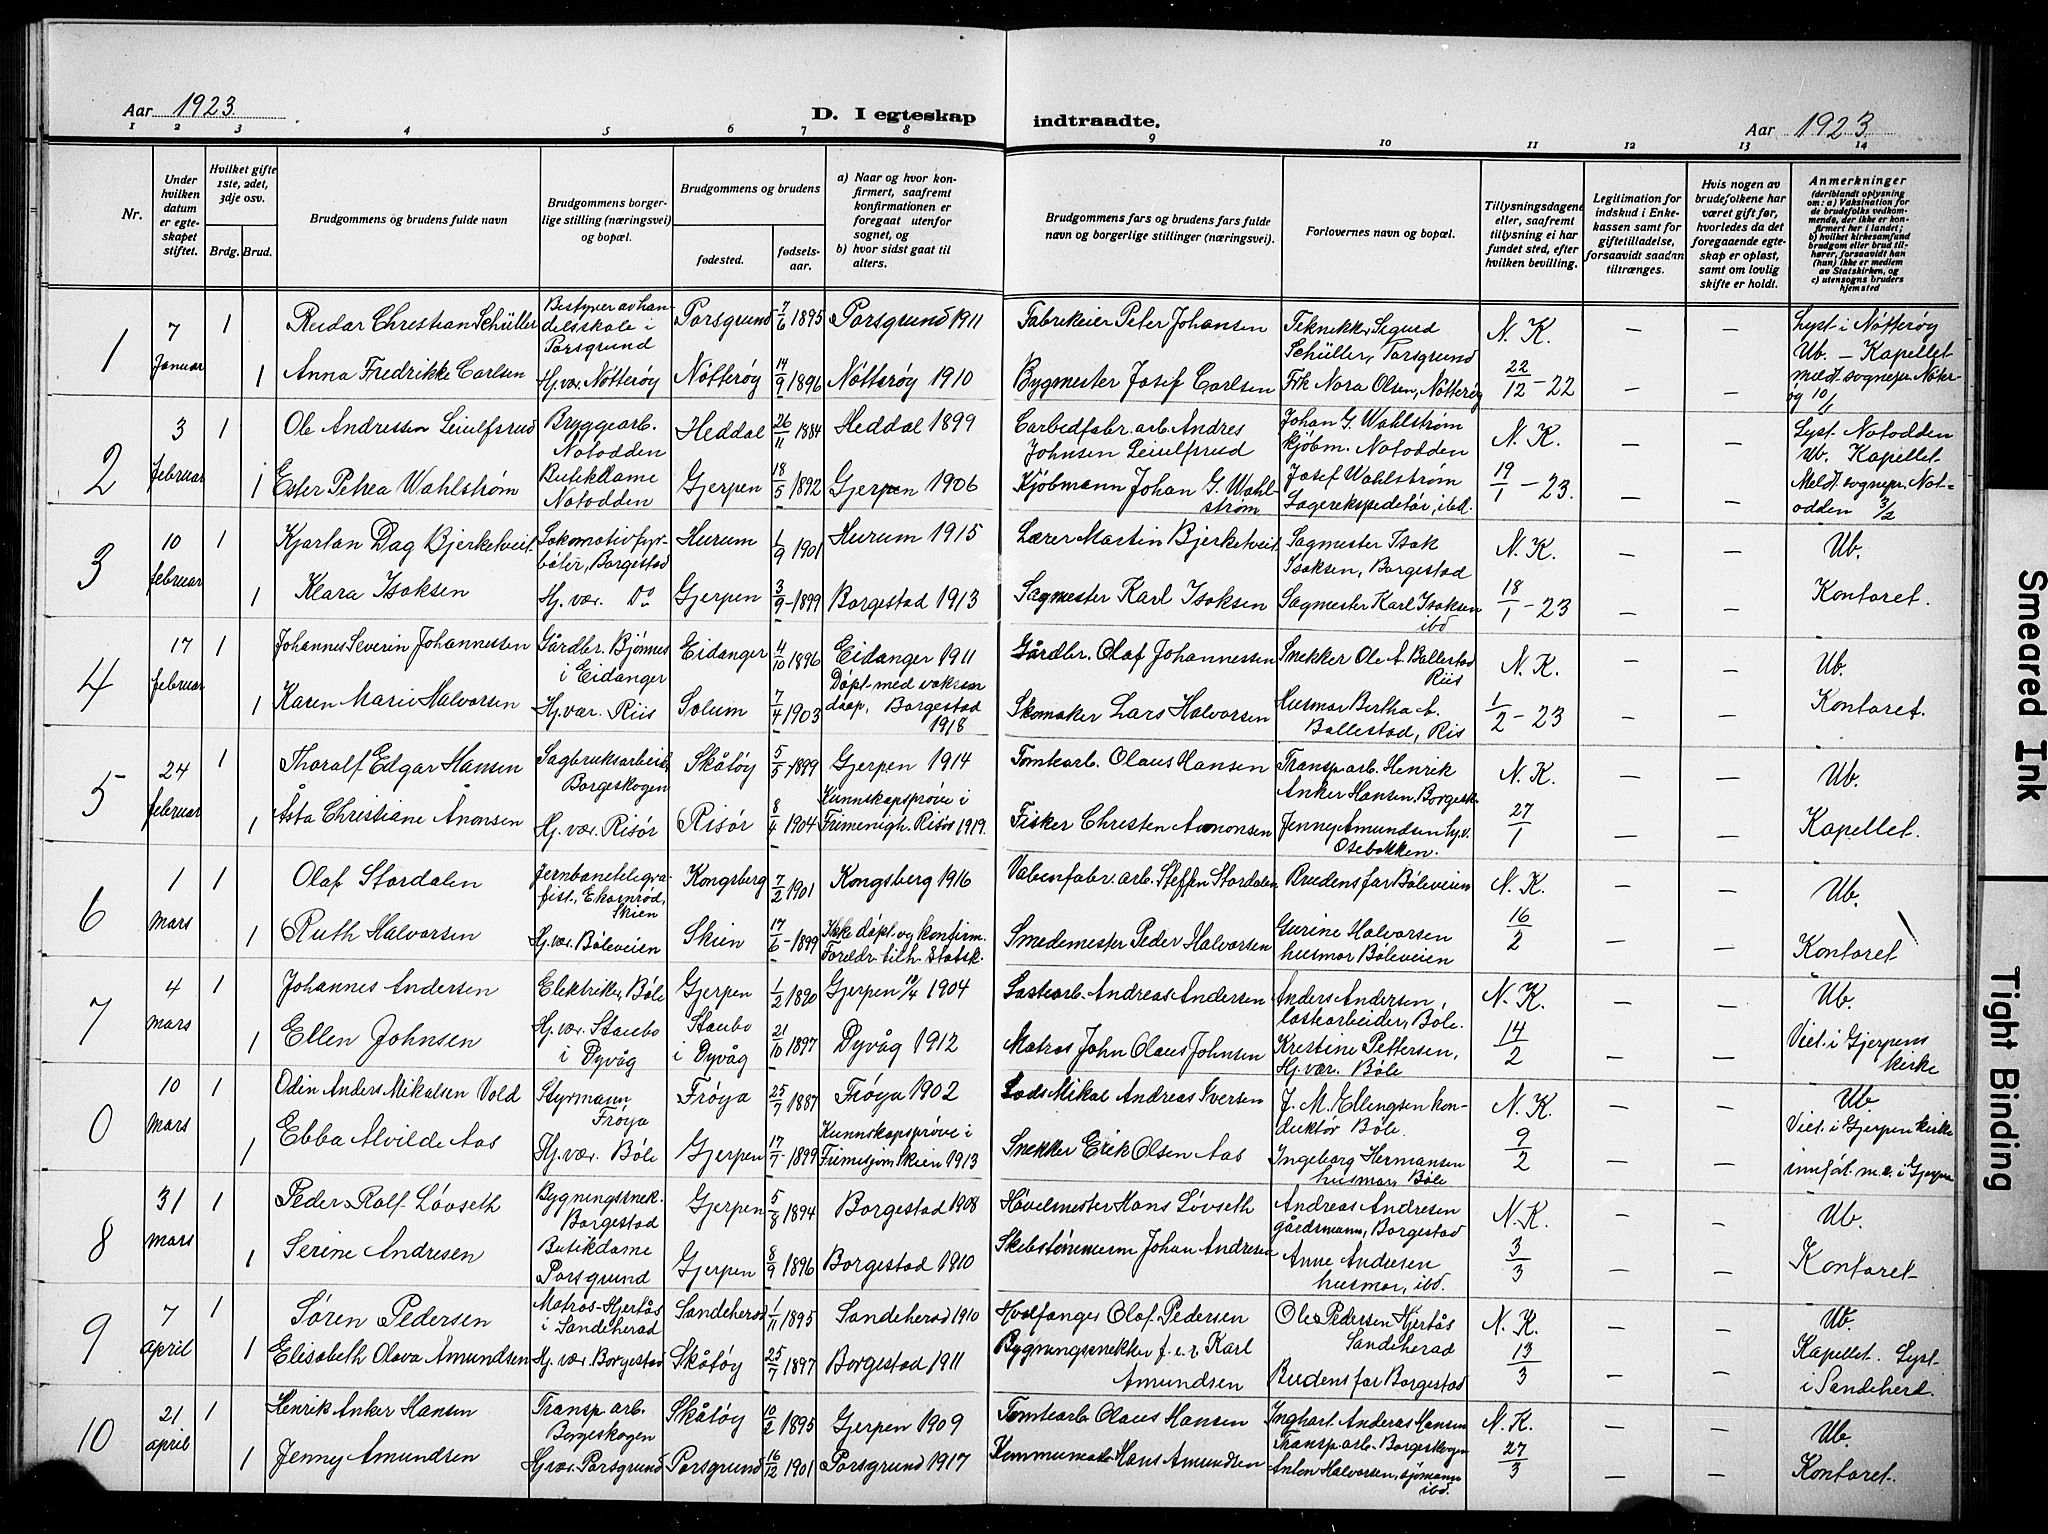 Aar 1923
D. I egteskap indtraadte.
Aar 1923
1 2 3 4 5 6 7 8 9 10 11 12 13 14
Nr.
Under hvilken datum er egteskapet stiftet.
Hvilket gifte 1ste, 2det, 3dje osv.
Brdg. Brud.
Brudgommens og brudens fulde navn
Brudgommens borgerlige stilling (næringsvei) og bopæl.
Brudgommens og brudens
fødested.
fødselsaar.
a) Naar og hvor konfirmert, saafremt konfirmationen er foregaat utenfor sognet, og
b) hvor sidst gaat til alters.
Brudgommens fars og brudens fars fulde navn og borgerlige stillinger (næringsvei).
Forlovernes navn og bopæl.
Tillysningsdagene eller, saafremt tillysning ei har fundet sted, efter hvilken bevilling.
Legitimation for indskud i Enkekassen samt for giftetilladelse, forsaavidt saadan tiltrænges.
Hvis nogen av brudefolkene har været gift før, hvorledes da det foregaaende egteskap er opløst, samt om lovlig skifte er holdt.
Anmerkninger (deriblandt oplysning om: a) Vaksination for de brudefolks vedkommende, der ikke er konfirmert her i landet; b) hvilket kirkesamfund brudgom eller brud tilhører, forsaavidt han (hun) ikke er medlem av Statskirken, og c) utensogns bruders hjemsted
1 7 Januar 1 Reidar Christian Schüller Bestyrer av handelsskole i Porsgrund Porsgrund 7/6 1895 Porsgrund 1911 Fabrikeier Peter Johansen Teknikk. Sigurd Schüller, Porsgrund N. K. — — Lyst i Nøtterøy
1 Anna Fredrikke Carlsen Hj.vær. Nøtterøy Nøtterøy 14/9 1896 Nøtterøy 1910 Bygmester Josef Carlsen Frk Nora Olsen, Nøtterøy 22/12 - 22 — — Ub. - Kapellet meldt sognepr. Nøtterøy 10/1
2 3 februar 1 Ole Andressen Leiulfsrud Bryggearb. Notodden Heddal 26/11 1884 Heddal 1899 Carbidfabr. arb. Andres Johnsen Leiulfsrud Johan G. Wahlstrøm kjøbm. Notodden N. K. — — Lyst Notodden Ub. Kapellet
1 Ester Petrea Wahlstrøm Butikdame Notodden Gjerpen 18/5 1892 Gjerpen 1906 Kjøbmann Johan G. Wahlstrøm Josef Wahlstrøm Lagerekspeditør, ibd. 19/1 - 23. — — Meldt sognepr. Notodden 3/2
3 10 februar 1 Kjartan Dag Bjerketveit Lokomotivfyrbøter, Borgestad Hurum 1/9 1901 Hurum 1915 Lærer Martin Bjerketveit Sagmester Isak Isaksen, Borgestad N. K. — — Ub.
1 Klara Isaksen Hj. vær. Do Gjerpen 3/9 1899 Borgestad 1913 Sagmester Karl Isaksen Sagmester Karl Isaksen ibd 18/1 - 23 — — Kontoret.
4 17 februar 1 Johannes Severin Johannessen Gårdbr. Bjønnes i Eidanger Eidanger 4/10 1896 Eidanger 1911 Gårdbr. Olaf Johannessen Snekker Ole A. Ballestad Riis N. K. — — Ub.
1 Karen Marie Halvorsen Hj.vær. Riis Solum 7/4 1903 Døpt med voksen dåp, Borgestad 1918 Skomaker Lars Halvorsen Husmor Bertha A. Ballestad, Ris 1/2 - 23 — — Kontoret.
5 24 februar 1 Thoralf Edgar Hansen Sagbruksarbeid. Borgeskogen Skåtøy 5/5 1899 Gjerpen 1914 Tomtearb. Olaus Hansen Transp. arb. Henrik Anker Hansen, Borgesk. N. K. — — Ub.
1 Åsta Christiane Ånonsen Hj. vær. Risør Risør 8/4 1904 Kunnskapsprøve i Frimenigh. Risør 1919. Fisker Christen Aanonsen Jenney Amundsen hj.v. Osebakken. 27/1 — — Kapellet.
6 1 mars 1 Olaf Stordalen Jernbanetelegrafist, Ekornrød, Skien Kongsberg 7/2 1901 Kongsberg 1916 Våbenfabr. arb. Steffen Stordalen Brudens far Bøleveien N. K. — — Ub.
1 Ruth Halvorsen Hj.vær. Bøleveien Skien 17/6 1899 Ikke døpt og konfirm. Foreldr. tilh. Statsk. Smedemester Peder Halvorsen Gurine Halvorsen husmor Bøleveien 16/2 — — Kontoret
7 4 mars 1 Johannes Andersen Elektriker, Bøle Gjerpen 1/2 1890 Gjerpen 12/4 1904 Lastearb. Andreas Andersen Anders Andersen, lastearbeider, Bøle. N. K. — — Ub.
1 Ellen Johnsen Hj. vær. Staubo i Dyvåg Staubo i Dyvåg 21/10 1897 Dyvåg 1912 Matros John Olaus Johnsen Kristine Pettersen, Hj.vær. Bøle 14/2 — — Viet i Gjerpens kirke
0 10 mars 1 Odin Anders Mikalsen Vold Styrmann Frøya Frøya 25/7 1887 Frøya 1902 Lods Mikal Andreas Iversen J. M. Ellingsen konduktør Bøle. N. K. — — Ub
1 Ebba Alvilde Aas Hj. vær. Bøle Gjerpen 17/7 1899 Kunnskapsprøve i Frimisjon Skien 1913 Snekker Erik Olsen Aas Ingeborg Hermansen husmor Bøle 9/2 — — Viet i Gjerpen kirke innført m.v. i Gjerpen
8 31 mars 1 Peder Rolf Løvseth Bygningssnek. Borgestad Gjerpen 5/8 1894 Borgestad 1908 Høvelmester Hans Løvseth Andreas Andresen gårdsmann, Borgestad N. K. — — Ub.
1 Serine Andresen Butikdame Porsgrund Gjerpen 8/9 1896 Borgestad 1910 Skibstømmerm Johan Andresen Anne Andersen husmor, ibd. 3/3 — — Kontoret
9 7 april 1 Søren Pedersen Matros Hjertås i Sandeherad Sandeherad 1/11 1895 Sandeherad 1910 Hvalfanger Olaf Pedersen Ole Pedersen Hjertås Sandeherad N. K. — — Ub.
1 Elisabeth Olava Amundsen Hj. vær. Borgestad Skåtøy 25/7 1897 Borgestad 1911 Bygningssnekker f.e.r. Karl Amundsen Brudens far Borgestad 13/3 — — Kapellet. Lyst i Sandeherd.
10 21 april 1 Henrik Anker Hansen Transp. arb. Borgeskogen Skåtøy 10/2 1895 Gjerpen 1909 Tomtearb Olaus Hansen Inghart Anderas Hansen Transp.arb. Borgeskogen N. K. — — Ub.
1 Jenny Amundsen Hj.vær. Porsgrund Porsgrund 16/12 1901 Porsgrund 1917 Hans Amundsen Anton Halvorsen, sjømann ibd. 27/3 — — Kontoret.
Smeared Ink
Tight Binding